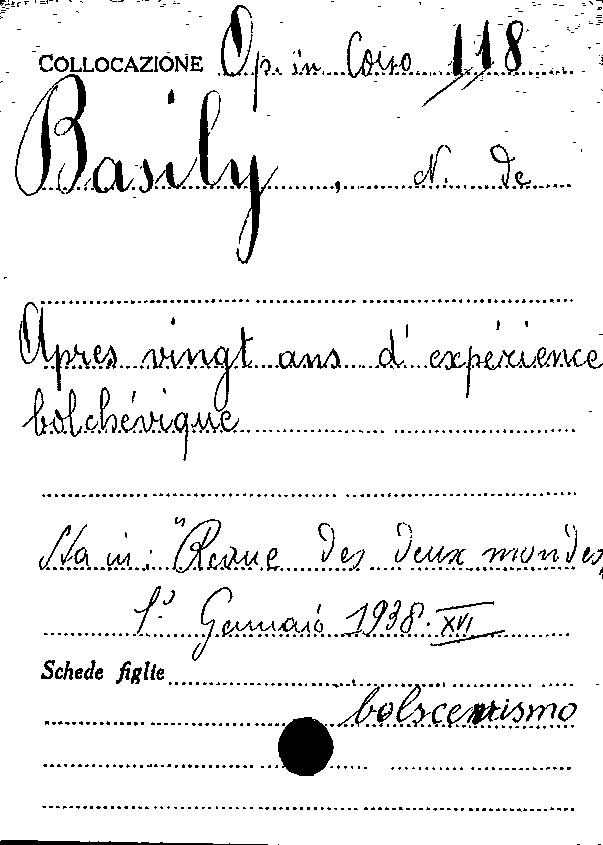 COLLOCAZIONE Op. in Corso 118
Basily, N. de
Apres vingt ans d' expérience
bolchévique
Sta in: "Revue des deux mondes,
1.º Gennaio 1938. XVI
Schede figlie
bolscevismo